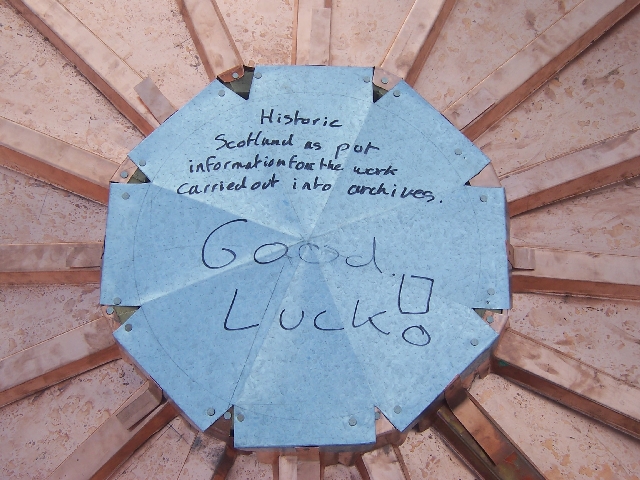 Historic
Scotland as put
information for the work
carried out into archives.
Good.
Luck!